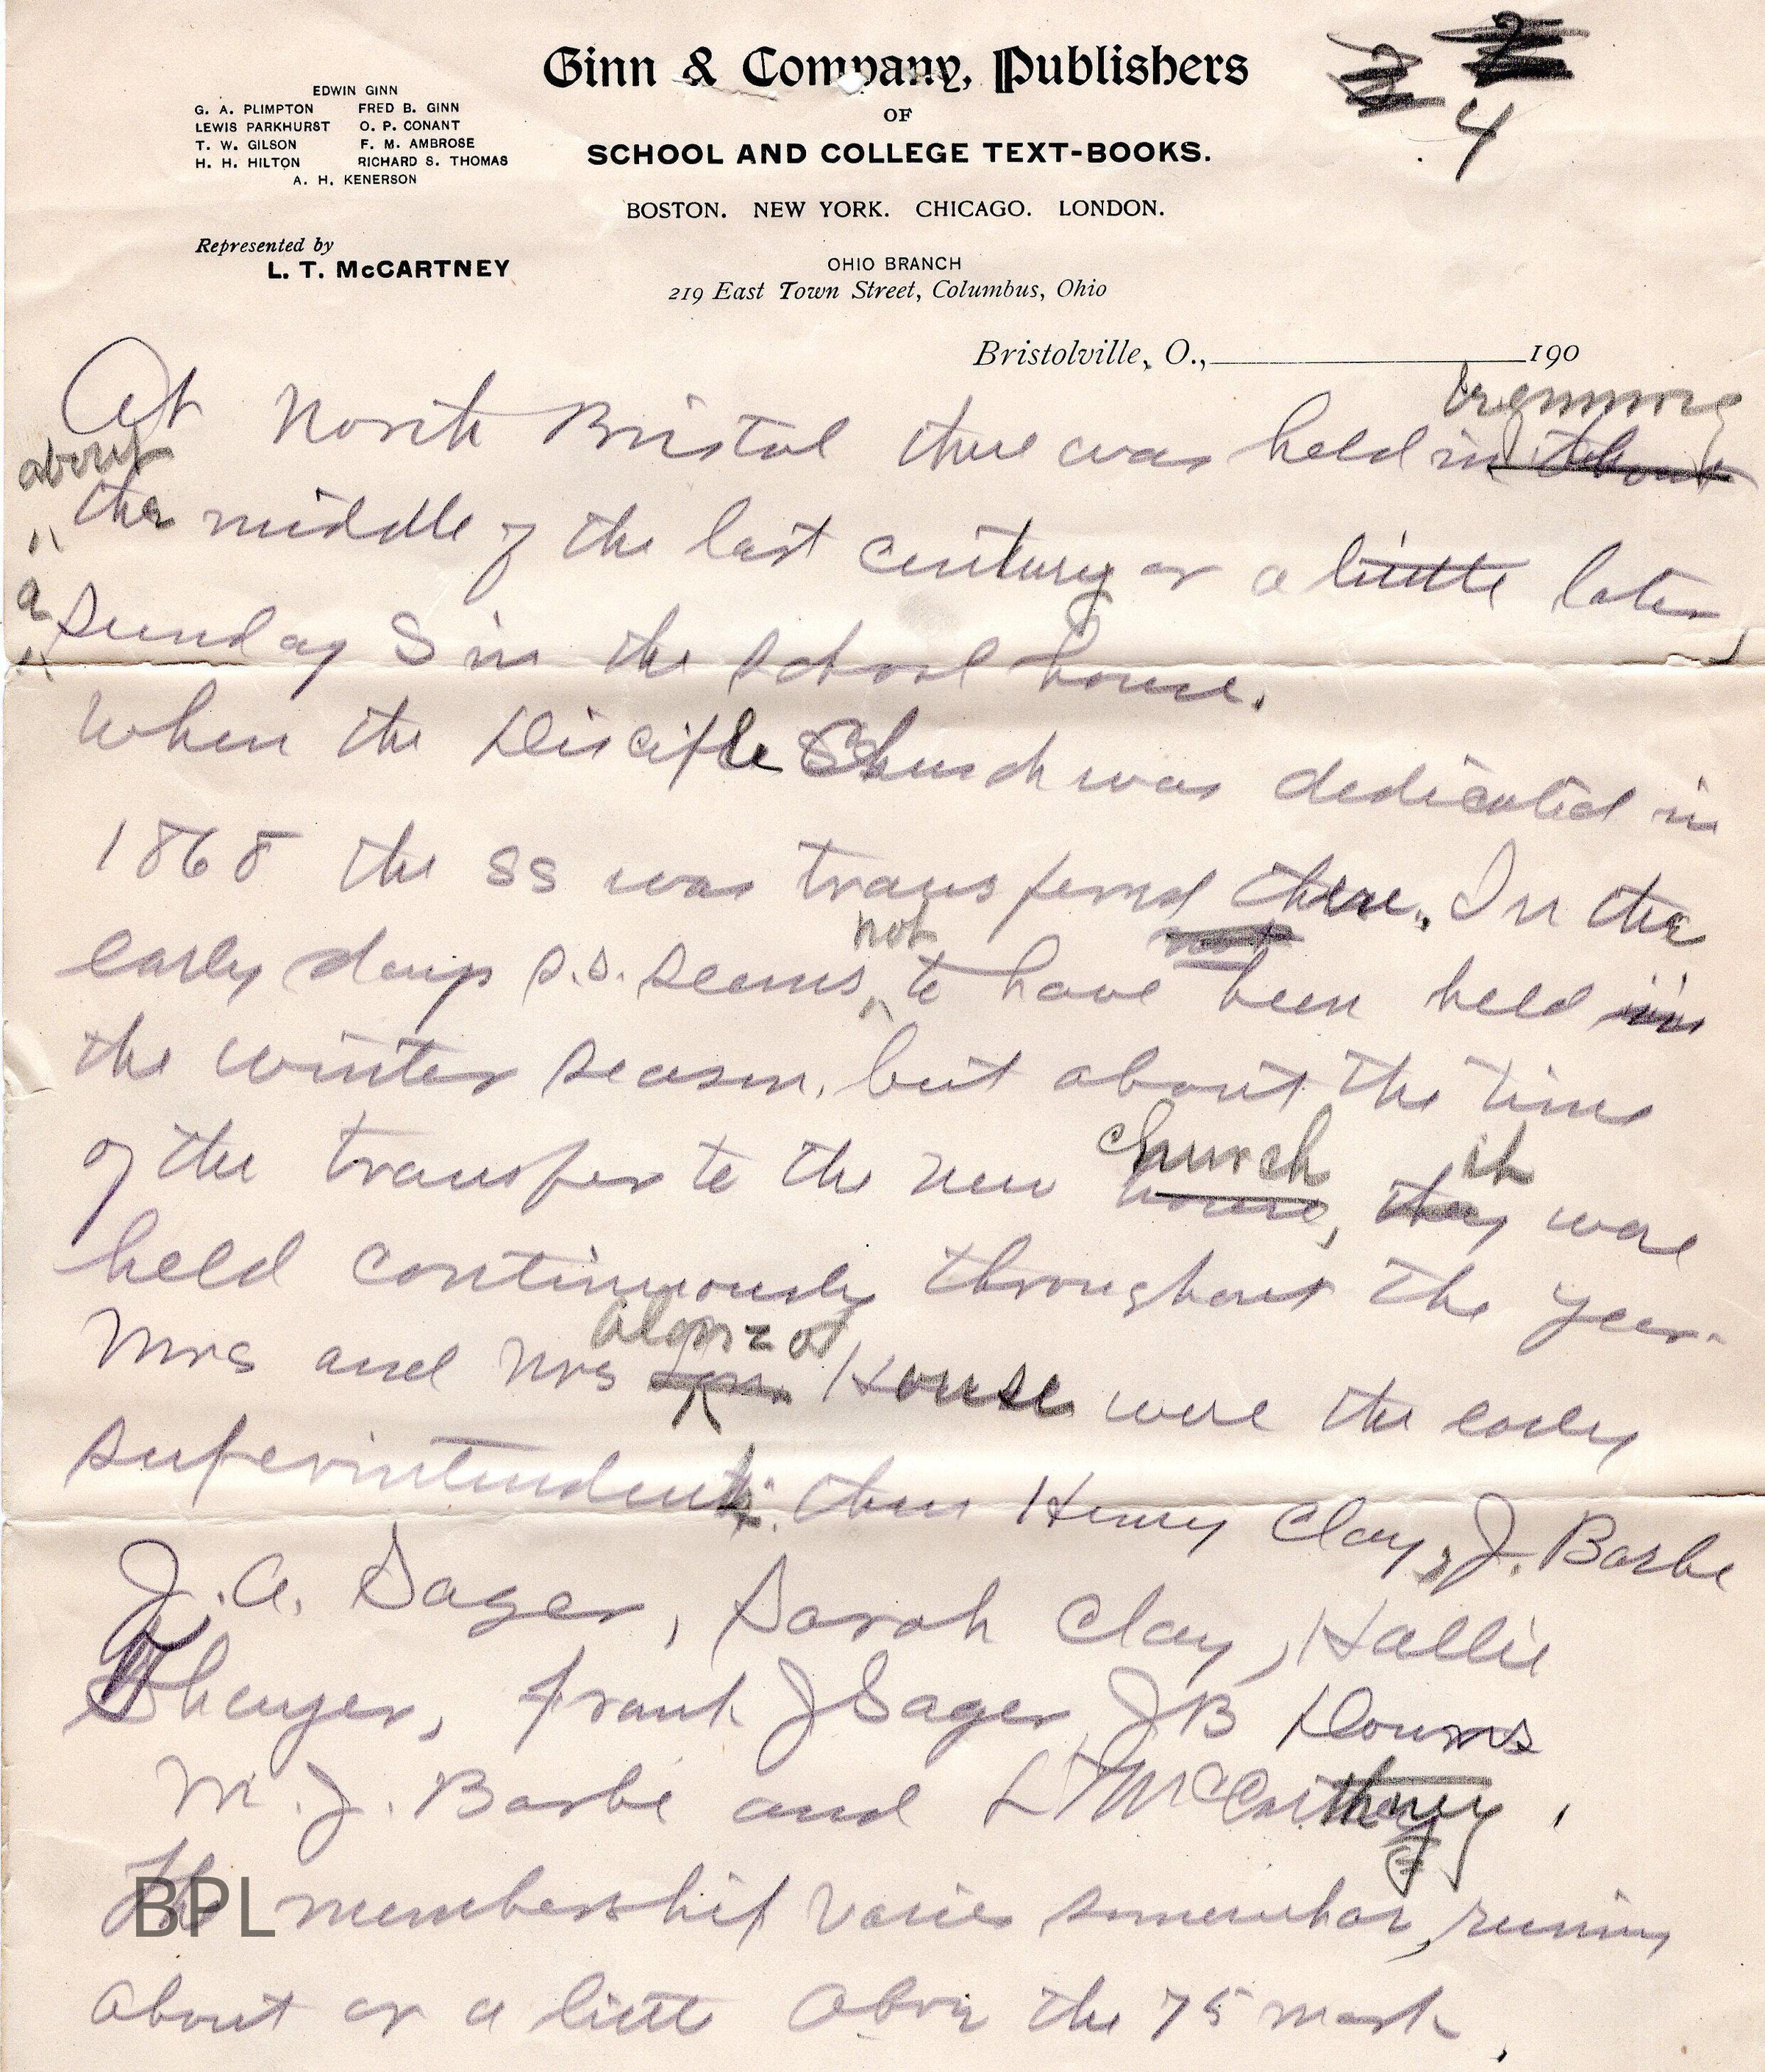 Ginn & Company, Publishers
OF
SCHOOL AND COLLEGE TEXT-BOOKS.
BOSTON. NEW YORK. CHICAGO. LONDON.
EDWIN GINN
G. A. PLIMPTON FRED B. GINN
LEWIS PARKHURST O. P. CONANT
T. W. GILSON F. M. AMBROSE
H. H. HILTON RICHARD S. THOMAS
A. H. KENERSON
Represented by
L. T. McCARTNEY
OHIO BRANCH
219 East Town Street, Columbus, Ohio
2 2
4
Bristolville, O., 190
beginning
At North Bristol there was held in about
about
the middle of the last century or a little later,
a
Sunday S in the school house.
When the Disciple Church was dedicated in
1868 the SS was transferred there. In the
not
early days s.s. seems to have not been held in
the winter season, but about the time
church it
of the transfer to the new house, they were
held continuously throughout the year.
Alonzo
Mrs and Mrs House were the early
superintendents. then Henry Clay, J. Barbe
J. A. Sager, Sarah Clay, Hallie
Thayer, Frank J Sager, J B Downs
M. J. Barbe and L T McCartney,
The membership varies somewhat, runing
about or a little above the 75 mark.
BPL